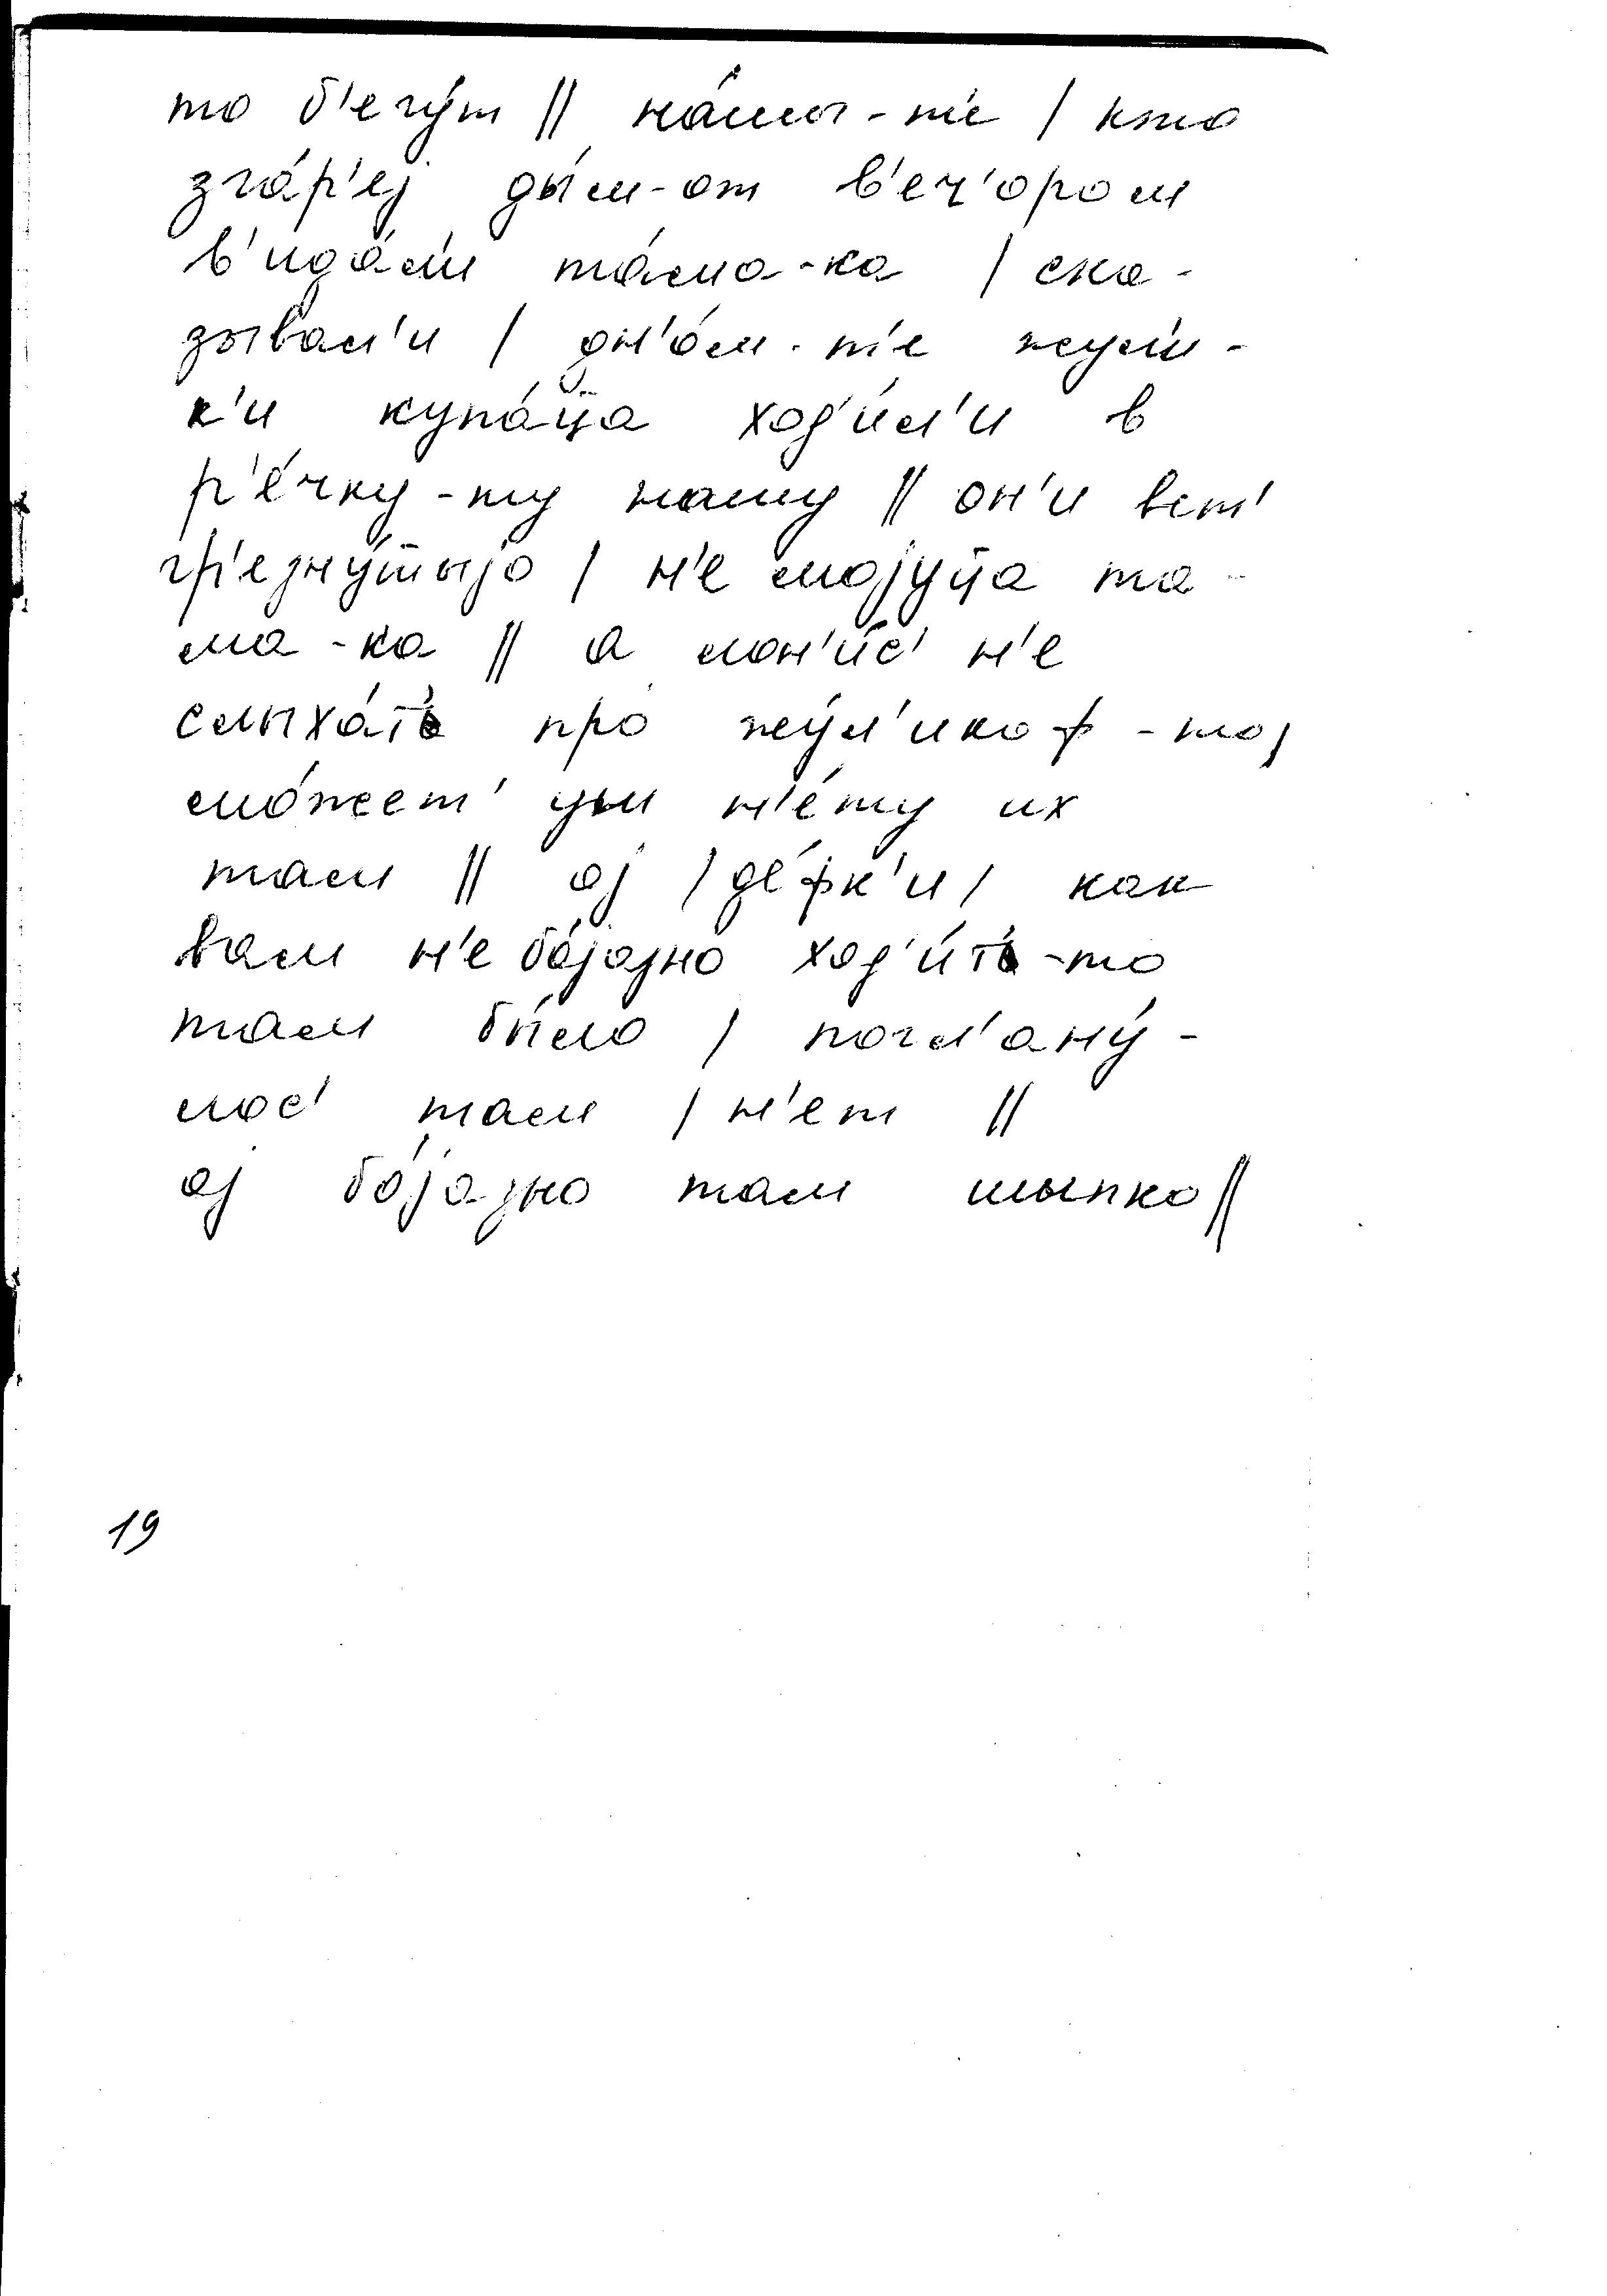 то б'егу́т || на́шы-т'е / кто
зга́р'еј ды́м-от в'еч'ором
в'ида́л'и та́ма-ка / ска-
зывал'и / дн'о́м-т'е жул'и-
к'и купа́ц̄а ход'и́л'и в
р'е́чку-ту нашу || он'и вет'
гр'езну́тыјо / н'е мојуц̄а та-
ма-ка || а лон'и́с' н'е
слыха́ть про жу́л'икоф-то /
мо́жет' уш н'е́ту их
там || ој / де́фк'и / как
вам н'е бо́јазно ход'и́ть-то
там бы́ло / погл'ану́-
лос' там / н'ет ||
ој бо́јазно там шыпко ||
19